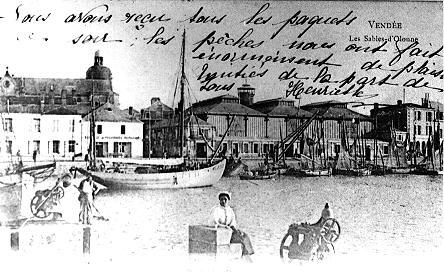 Nous avons reçu tous les paquets
ce soir ; les pêches nous ont fait
énormément de plaisir
de la part de
tous Henriette
VENDÉE
Les Sables-d'Olonne